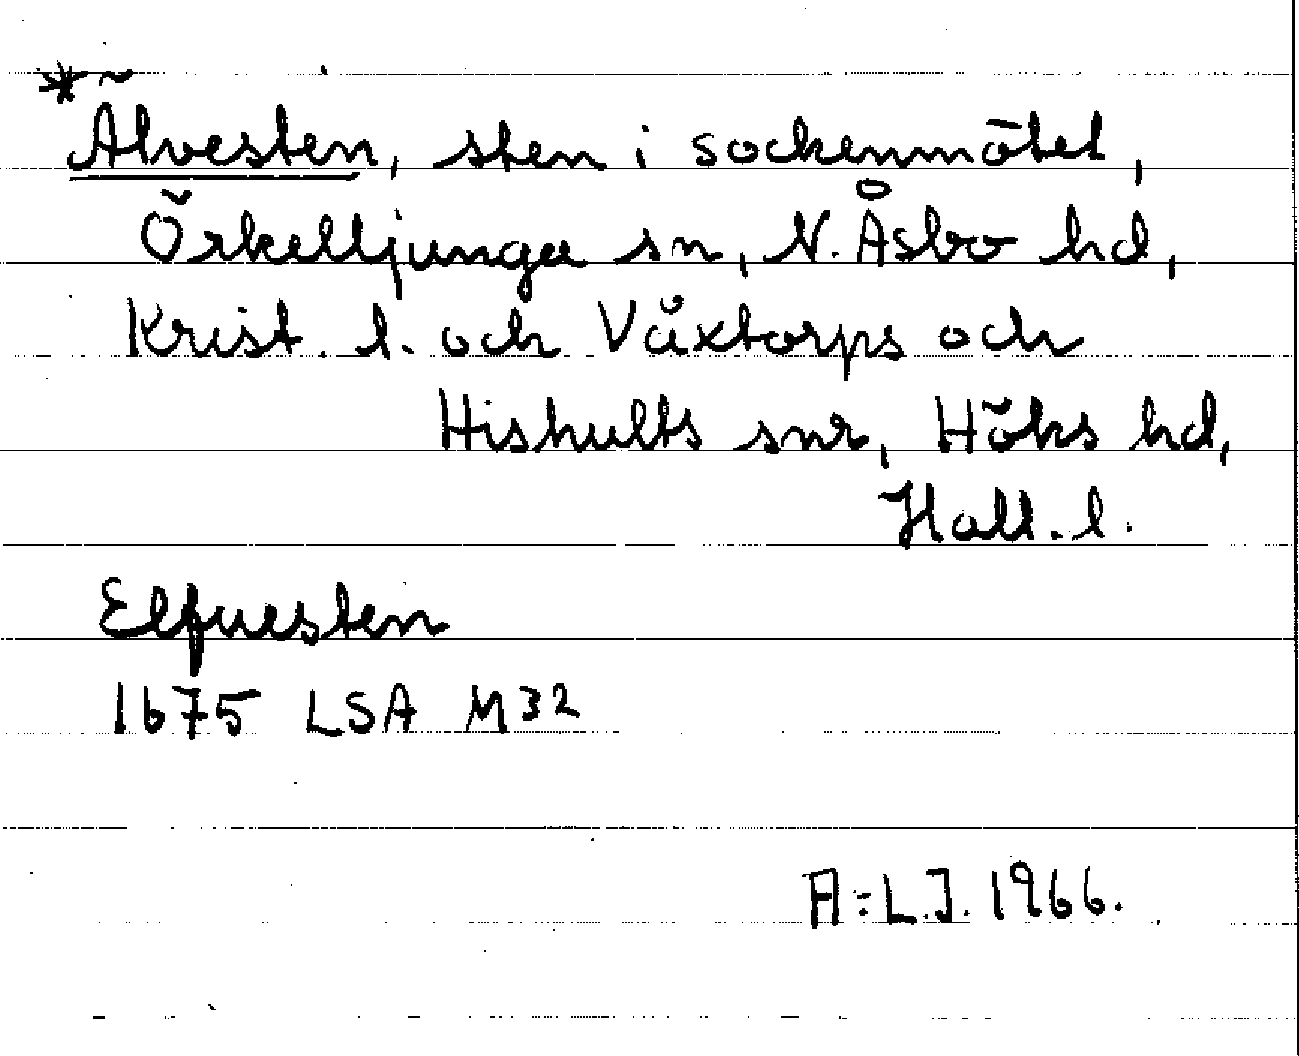 *Älvesten, sten i sockenmötet,
Örkelljunga sn, N. Åsbo hd,
Krist. l. och Växtorps och
Hishults snr, Höks hd,
Hall. l.
Elfuesten
1675 LSA M32
A-L.J. 1966.